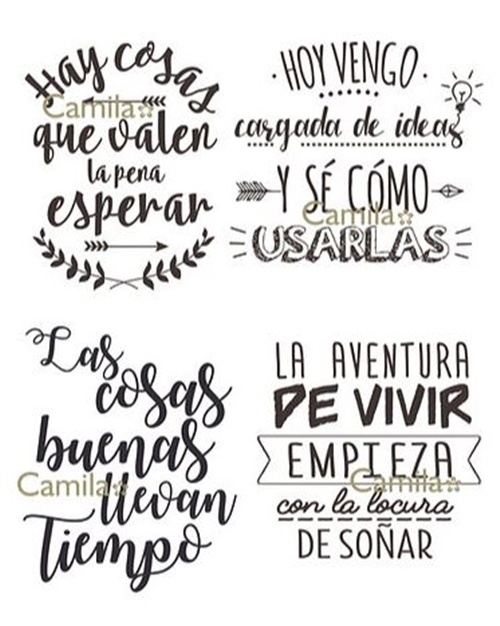 Hay cosas
Camila
que valen
la pena
esperar
HOY VENGO
cargada de ideas
Y SÉ CÓMO
Camila
USARLAS
Las
cosas
buenas
Camila
llevan
Tiempo
LA AVENTURA
DE VIVIR
EMPIEZA
Camila
con la locura
DE SOÑAR